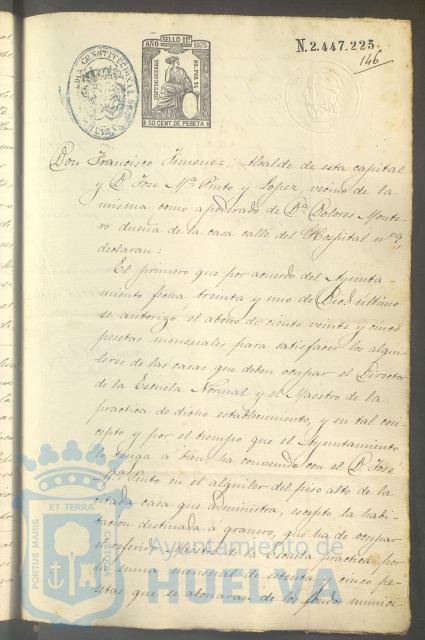 SELLO 11º
AÑO 1875
50 CENT DE PESETA
N.2.447.225
146
Don Francisco Jimenez, Alcalde de esta capital
y D. Jose Mª Pinto y Lopez, vecino de la
misma como apoderado de Dª Dolores Monte-
ro dueña de la casa calle del Hospital nº 9
declaran:
El primero que por acuerdo del Ayunta-
miento fecha treinta y uno de Dicb último
se autorizó el abono de ciento veinte y cinco
pesetas mensuales para satisfacer los alqui-
leres de las casas que deben ocupar el Director
de la Escuela Normal y el Maestro de la
practica de dicho establecimiento, y en tal con-
cepto y por el tiempo que el Ayuntamiento
lo tenga á bien, ha convenido con el D. José
Mª Pinto en el alquiler del piso alto de la
citada casa que administra, escepto la habi-
tacion destinada á granero, que ha de ocupar
el referido Maestro de la Escuela practica por
la suma mensual de setenta y cinco pe-
setas que se abonaran de los fondos munici-
ET TERRA
PORTUS MARIS
CUSTODIA
Ayuntamiento de
HUELVA